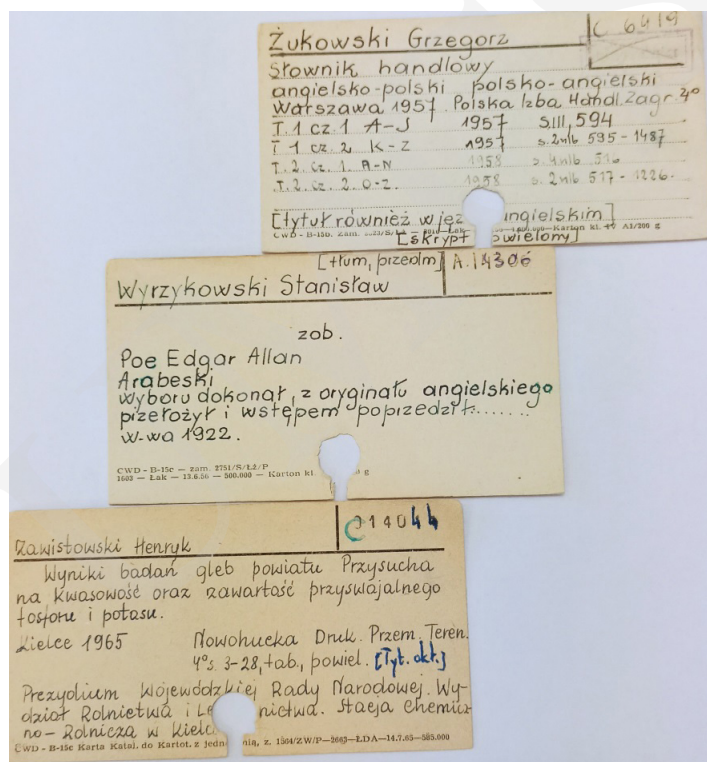 Żukowski Grzegorz
C 6419
Słownik handlowy
angielsko-polski polsko-angielski
Warszawa 1957 Polska Izba Handl. Zagr. 4°
T. 1 cz. 1 A-J 1957 s. III, 594
T 1 cz. 2 K-Z 1957 s. 2nlb 595-1487
T. 2. cz. 1. A-N 1958 s. 4nlb 516
T. 2. cz. 2 O-Z. 1958 s. 2nlb 517-1226.
[tytuł również w jęz ngielskim]
[skrypt owielony]
CWD - B-15b. Zam. Karton kl. A1/200 g
[tłum, przedm] A.14306
Wyrzykowski Stanisław
zob.
Poe Edgar Allan
Arabeski
Wyboru dokonał, z oryginału angielskiego
przełożył i wstępem poprzedził.......
W-wa 1922.
CWD - B-15c — zam. 2751/S/Łż/P
1603 — Łak — 13.6.56 — 500.000 — Karton kl. g
C 14044
Zawistowski Henryk
Wyniki badań gleb powiatu Przysucha
na kwasowość oraz zawartość przyswajalnego
fosforu i potasu.
Kielce 1965 Nowohucka Druk. Przem. Teren.
4° s. 3-28, tab., powiel. [Tyt. okł.]
Prezydium Wojewódzkiej Rady Narodowej. Wy-
dział Rolnictwa i Le nictwa. Stacja Chemicz
no-Rolnicza w Kielc
CWD - B-15c Karta Katal. do Kartot. z jedn nią, z. 1564/ZW/P—2663—ŁDA—14.7.65—585.000